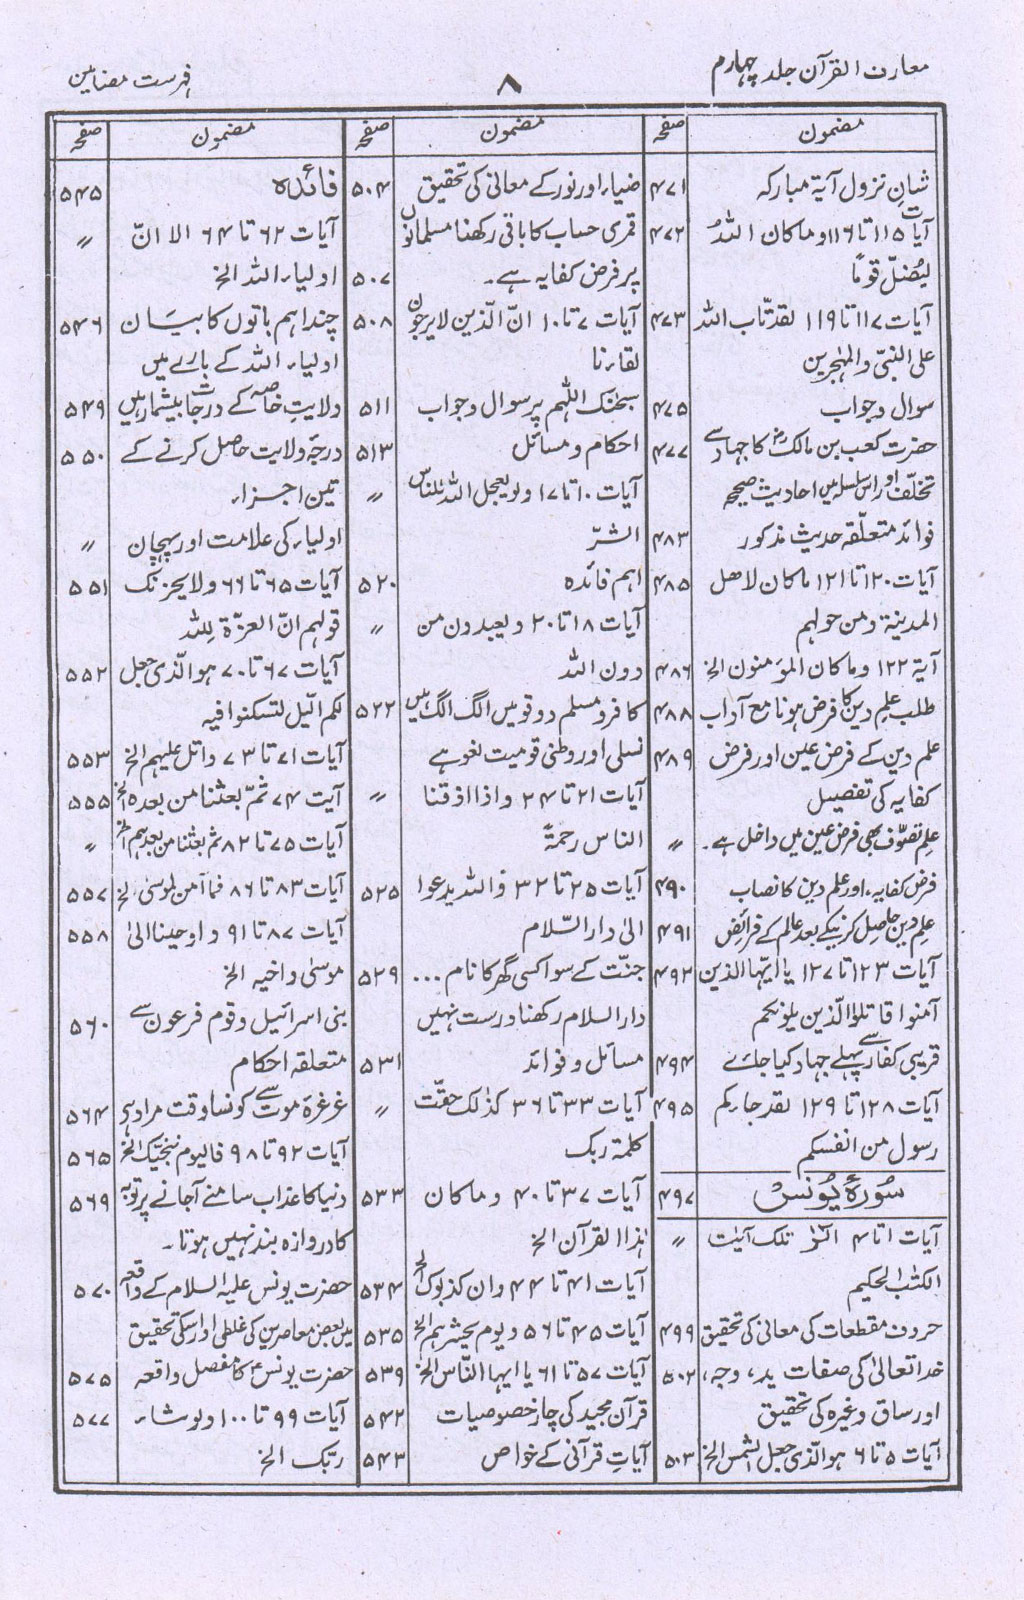 معارف القرآن جلد چہارم
۸
فہرست مضامین
مضمون
صفحہ
شانِ نزول آیۃ مبارکہ ۴۷۱
آیات ۱۱۵ تا ۱۱۶ وما کان اللہُ ۴۷۲
لیُضلّ قومًا
آیات ۱۱۷ تا ۱۱۹ لقد تّاب اللہ ۴۷۳
علی النبیّ والمہٰجرین
سوال وجواب ۴۷۵
حضرت کعب بن مالکؓ کا جہاد سے ۴۷۷
تخلّف اور اس سلسلہ میں احادیث صحیحہ
فوائد متعلّقہ حدیث مذکور ۴۸۳
آیات ۱۲۰ تا ۱۲۱ ماکان لاھل ۴۸۵
المدینۃ ومن حولہم
آیۃ ۱۲۲ وماکان المؤمنون الخ ۴۸۶
طلب علمِ دین کا فرض ہونا مع آداب ۴۸۸
علم دین کے فرض عین اور فرض ۴۸۹
کفایہ کی تفصیل
علمِ تصوّف بھی فرض عین میں داخل ہے۔ 〃
فرض کفایہ، اور علم دین کا نصاب ۴۹۰
علمِ دین حاصل کرنیکے بعد عالم کے فرائض ۴۹۱
آیات ۱۲۳ تا ۱۲۷ یا ایّہا الذین ۴۹۲
آمنوا قاتلوا الّذین یلونکم
قریبی کفار سے پہلے جہاد کیا جائے ۴۹۴
آیات ۱۲۸ تا ۱۲۹ لقد جاءکم ۴۹۵
رسول من انفسکم
سُورۃُ یُونس ۴۹۷
آیات ۱ تا ۴ الٓرٰ تلک آیٰت 〃
الکتٰب الحکیم
حروف مقطعات کی معانی کی تحقیق ۴۹۹
خدا تعالیٰ کی صفات ید، وجہ، ۵۰۲
اور ساق وغیرہ کی تحقیق
آیات ۵ تا ۶ ہو الّذی جعل الشمس الخ ۵۰۳
مضمون
صفحہ
ضیاء اور نور کے معانی کی تحقیق ۵۰۴
قمری حساب کا باقی رکھنا مسلمانوں
پر فرض کفایہ ہے۔ ۵۰۷
آیات ۷ تا ۱۰ انّ الّذین لا یرجون ۵۰۸
لقاءنا
سبحٰنک اللّٰہم پر سوال وجواب ۵۱۱
احکام ومسائل ۵۱۳
آیات ۱۰ تا ۱۷ ولو یعجل اللہ للناس 〃
الشرّ
اہم فائدہ ۵۲۰
آیات ۱۸ تا ۲۰ ویعبدون من 〃
دون اللہ
کافر ومسلم دو قومیں الگ الگ ہیں ۵۲۲
نسلی اور وطنی قومیت لغو ہے
آیات ۲۱ تا ۲۴ واذا اذقنا 〃
الناس رحمۃً
آیات ۲۵ تا ۳۲ واللہ یدعوا ۵۲۵
الیٰ دار السّلام
جنّت کے سوا کسی گھر کا نام ... ۵۲۹
دارالسلام رکھنا درست نہیں
مسائل وفوائد ۵۳۱
آیات ۳۳ تا ۳۶ کذٰلک حقّت 〃
کلمۃ ربک
آیات ۳۷ تا ۴۰ وماکان ۵۳۳
ہٰذا القرآن الخ
آیات ۴۱ تا ۴۴ وان کذبوک الخ ۵۳۴
آیات ۴۵ تا ۵۶ ویوم یحشرہم الخ ۵۳۵
آیات ۵۷ تا ۶۱ یا ایہا النّاس الخ ۵۳۹
قرآن مجید کی چار خصوصیات ۵۴۲
آیاتِ قرآنی کے خواص ۵۴۳
مضمون
صفحہ
فائدہ ۵۴۵
آیات ۶۲ تا ۶۴ الا انّ 〃
اولیاء اللہ الخ
چند اہم باتوں کا بیان ۵۴۶
اولیاء اللہ کے بارے میں
ولایتِ خاصہ کے درجات بیشمار ہیں ۵۴۹
درجۂ ولایت حاصل کرنے کے ۵۵۰
تین اجزاء
اولیاء کی علامت اور پہچان 〃
آیات ۶۵ تا ۶۶ ولا یحزنک ۵۵۱
قولہم انّ العزّۃ للہ
آیات ۶۷ تا ۷۰ ہو الّذی جعل ۵۵۲
لکم الّیل لتسکنوا فیہ
آیات ۷۱ تا ۷۳ واتل علیہم الخ ۵۵۳
آیت ۷۴ ثمّ بعثنا من بعدہ الخ ۵۵۵
آیات ۷۵ تا ۸۲ ثم بعثنا من بعدہم الخ 〃
آیات ۸۳ تا ۸۶ فما آمن لموسیٰ الخ ۵۵۷
آیات ۸۷ تا ۹۱ واوحینا الیٰ ۵۵۸
موسیٰ واخیہ الخ
بنی اسرائیل وقوم فرعون سے ۵۶۰
متعلقہ احکام
غرغرۂ موت سے کونسا وقت مراد ہی ۵۶۴
آیات ۹۲ تا ۹۸ فالیوم ننجیک الخ ۵۶۵
دنیا کا عذاب سامنے آجانے پر توبہ ۵۶۹
کا دروازہ بند نہیں ہوتا۔
حضرت یونس علیہ السلام کے واقعہ ۵۷۰
میں بعض معاصرین کی غلطی اور اسکی تحقیق
حضرت یونسؑ کا مفصل واقعہ ۵۷۵
آیات ۹۹ تا ۱۰۰ ولو شاء ۵۷۷
ربّک الخ